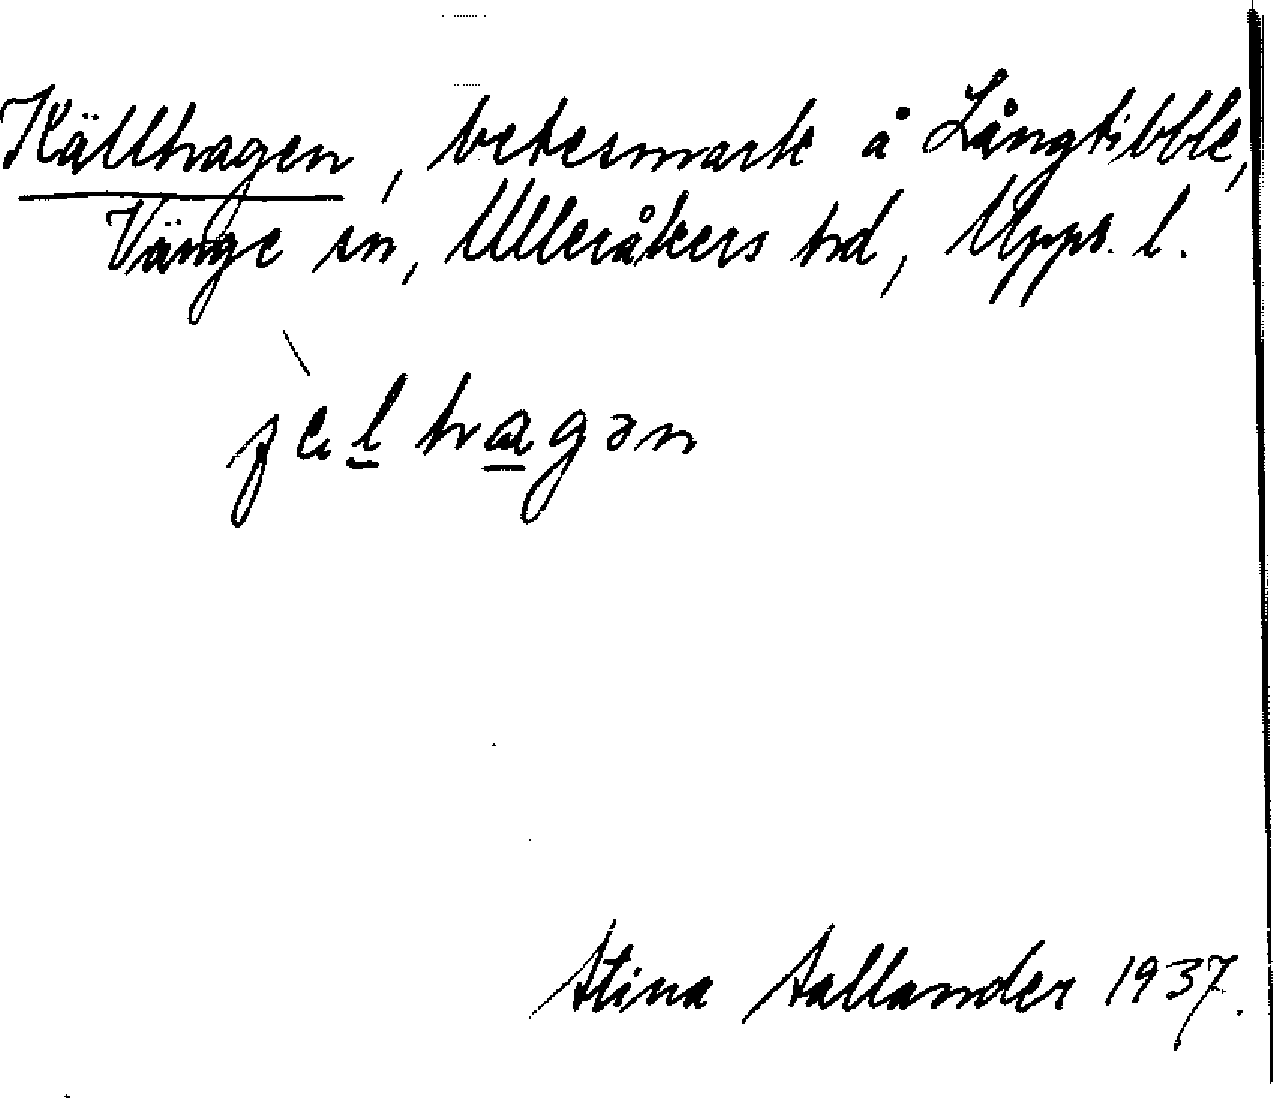 Källhagen, betesmark å Långtibble,
Vänge sn, Ulleråkers hd, Upps. l.
Stina Sallander 1937.